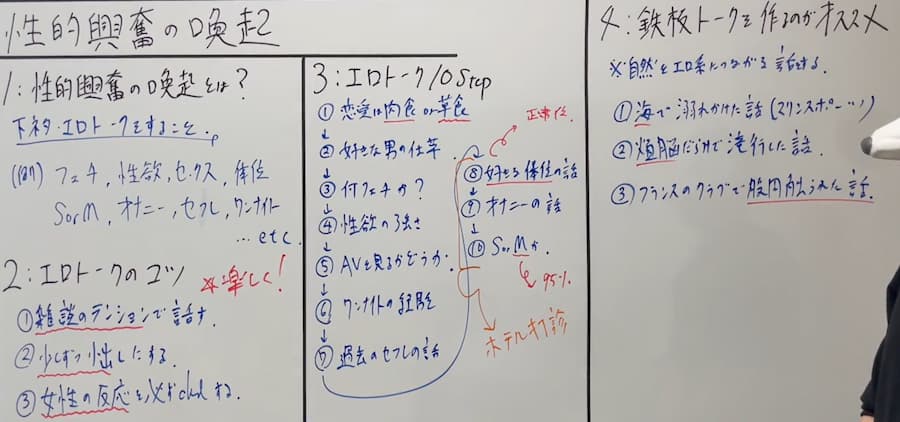 性的興奮の喚起2
1:性的興奮の喚起とは?
下ネタ・エロトークをすること。
(例) フェチ, 性欲, セックス, 体位
SorM, オナニー, セフレ, ワンナイト
...etc.
2:エロトークのコツ
※楽しく!
①雑談のテンションで話す.
②少しずつ小出しにする.
③女性の反応を必ずcheckする.
3:エロトーク10Step
①恋愛は肉食or草食
↓
②好きな男の仕草.
↓
③何フェチか?
↓
④性欲の強さ
↓
⑤AVを見るかどうか.
↓
⑥ワンナイトの経験
↓
⑦過去のセフレの話
正常位.
⑧好きな体位の話
↓
⑨オナニーの話
↓
⑩SorMか.
95%
ホテル打診
4:鉄板トークを作るのがオススメ
※自然とエロ系につながる話をする.
①海で溺れかけた話(マリンスポーツ)
②煩悩だらけで滝行した話.
③フランスのクラブで股間触られた話.